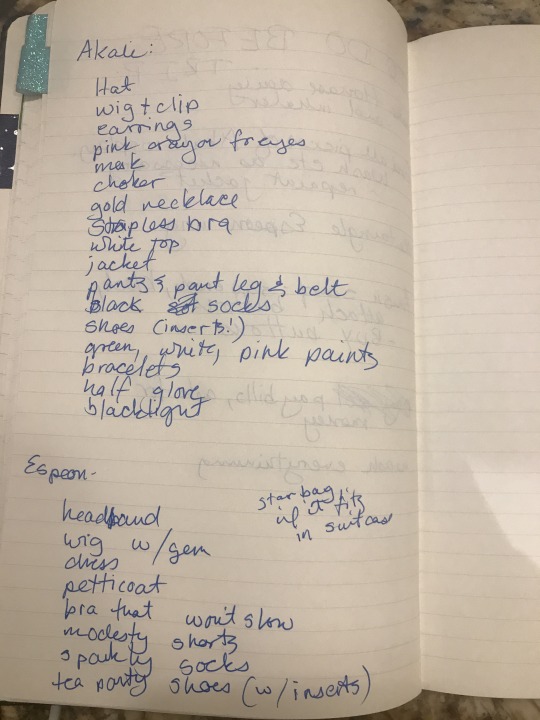 Akali:
Hat
wig + clip
earrings
pink crayon for eyes
mask
choker
gold necklace
Strapless bra
white top
jacket
pants & pant leg & belt
black socks
shoes (inserts!)
green, white, pink paints
bracelets
half glove
blacklight
Espeon-
headband
wig w/gem
dress
petticoat
bra that won't show
modesty shorts
sparkly socks
tea party shoes (w/inserts)
star bag
if it fits
in suitcase